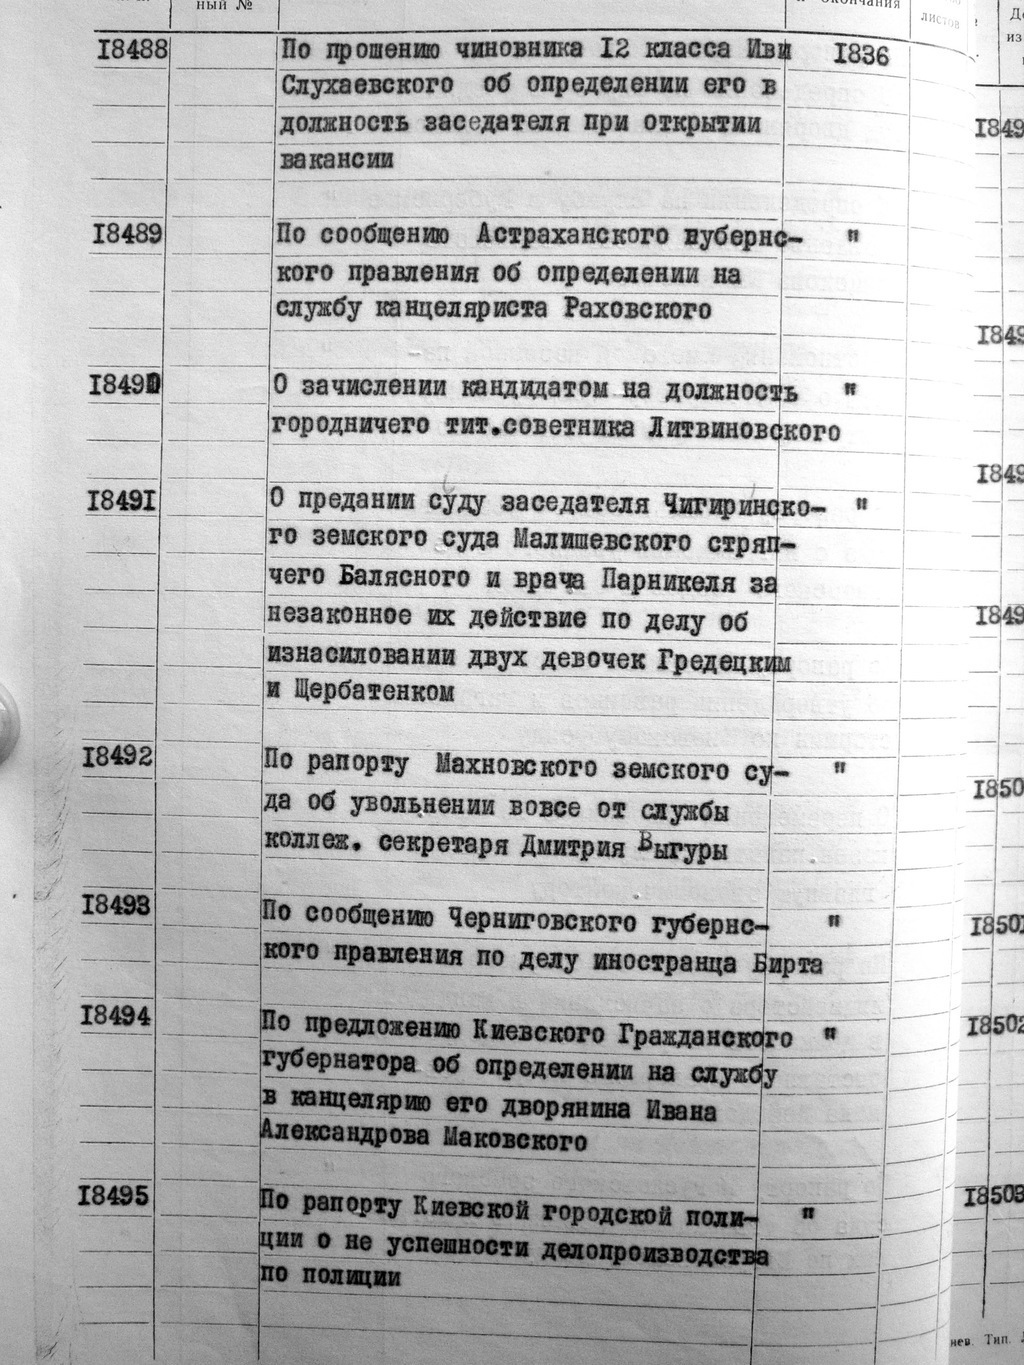 ный № и окончания листов
18488 По прошению чиновника 12 класса Иви 1836
Слухаевского об определении его в
должность заседателя при открытии
вакансии
18489 По сообщению Астраханского губернс- "
кого правления об определении на
службу канцеляриста Раховского
18490 О зачислении кандидатом на должность "
городничего тит.советника Литвиновского
18491 О предании суду заседателя Чигиринско- "
го земского суда Малишевского стряп-
чего Балясного и врача Парникеля за
незаконное их действие по делу об
изнасиловании двух девочек Гредецким
и Щербатенком
18492 По рапорту Махновского земского су- "
да об увольнении вовсе от службы
коллеж. секретаря Дмитрия Выгуры
18493 По сообщению Черниговского губернс- "
кого правления по делу иностранца Бирта
18494 По предложению Киевского Гражданского "
губернатора об определении на службу
в канцелярию его дворянина Ивана
Александрова Маковского
18495 По рапорту Киевской городской поли- "
ции о не успешности делопроизводства
по полиции
18501
18502
18503
Тип.